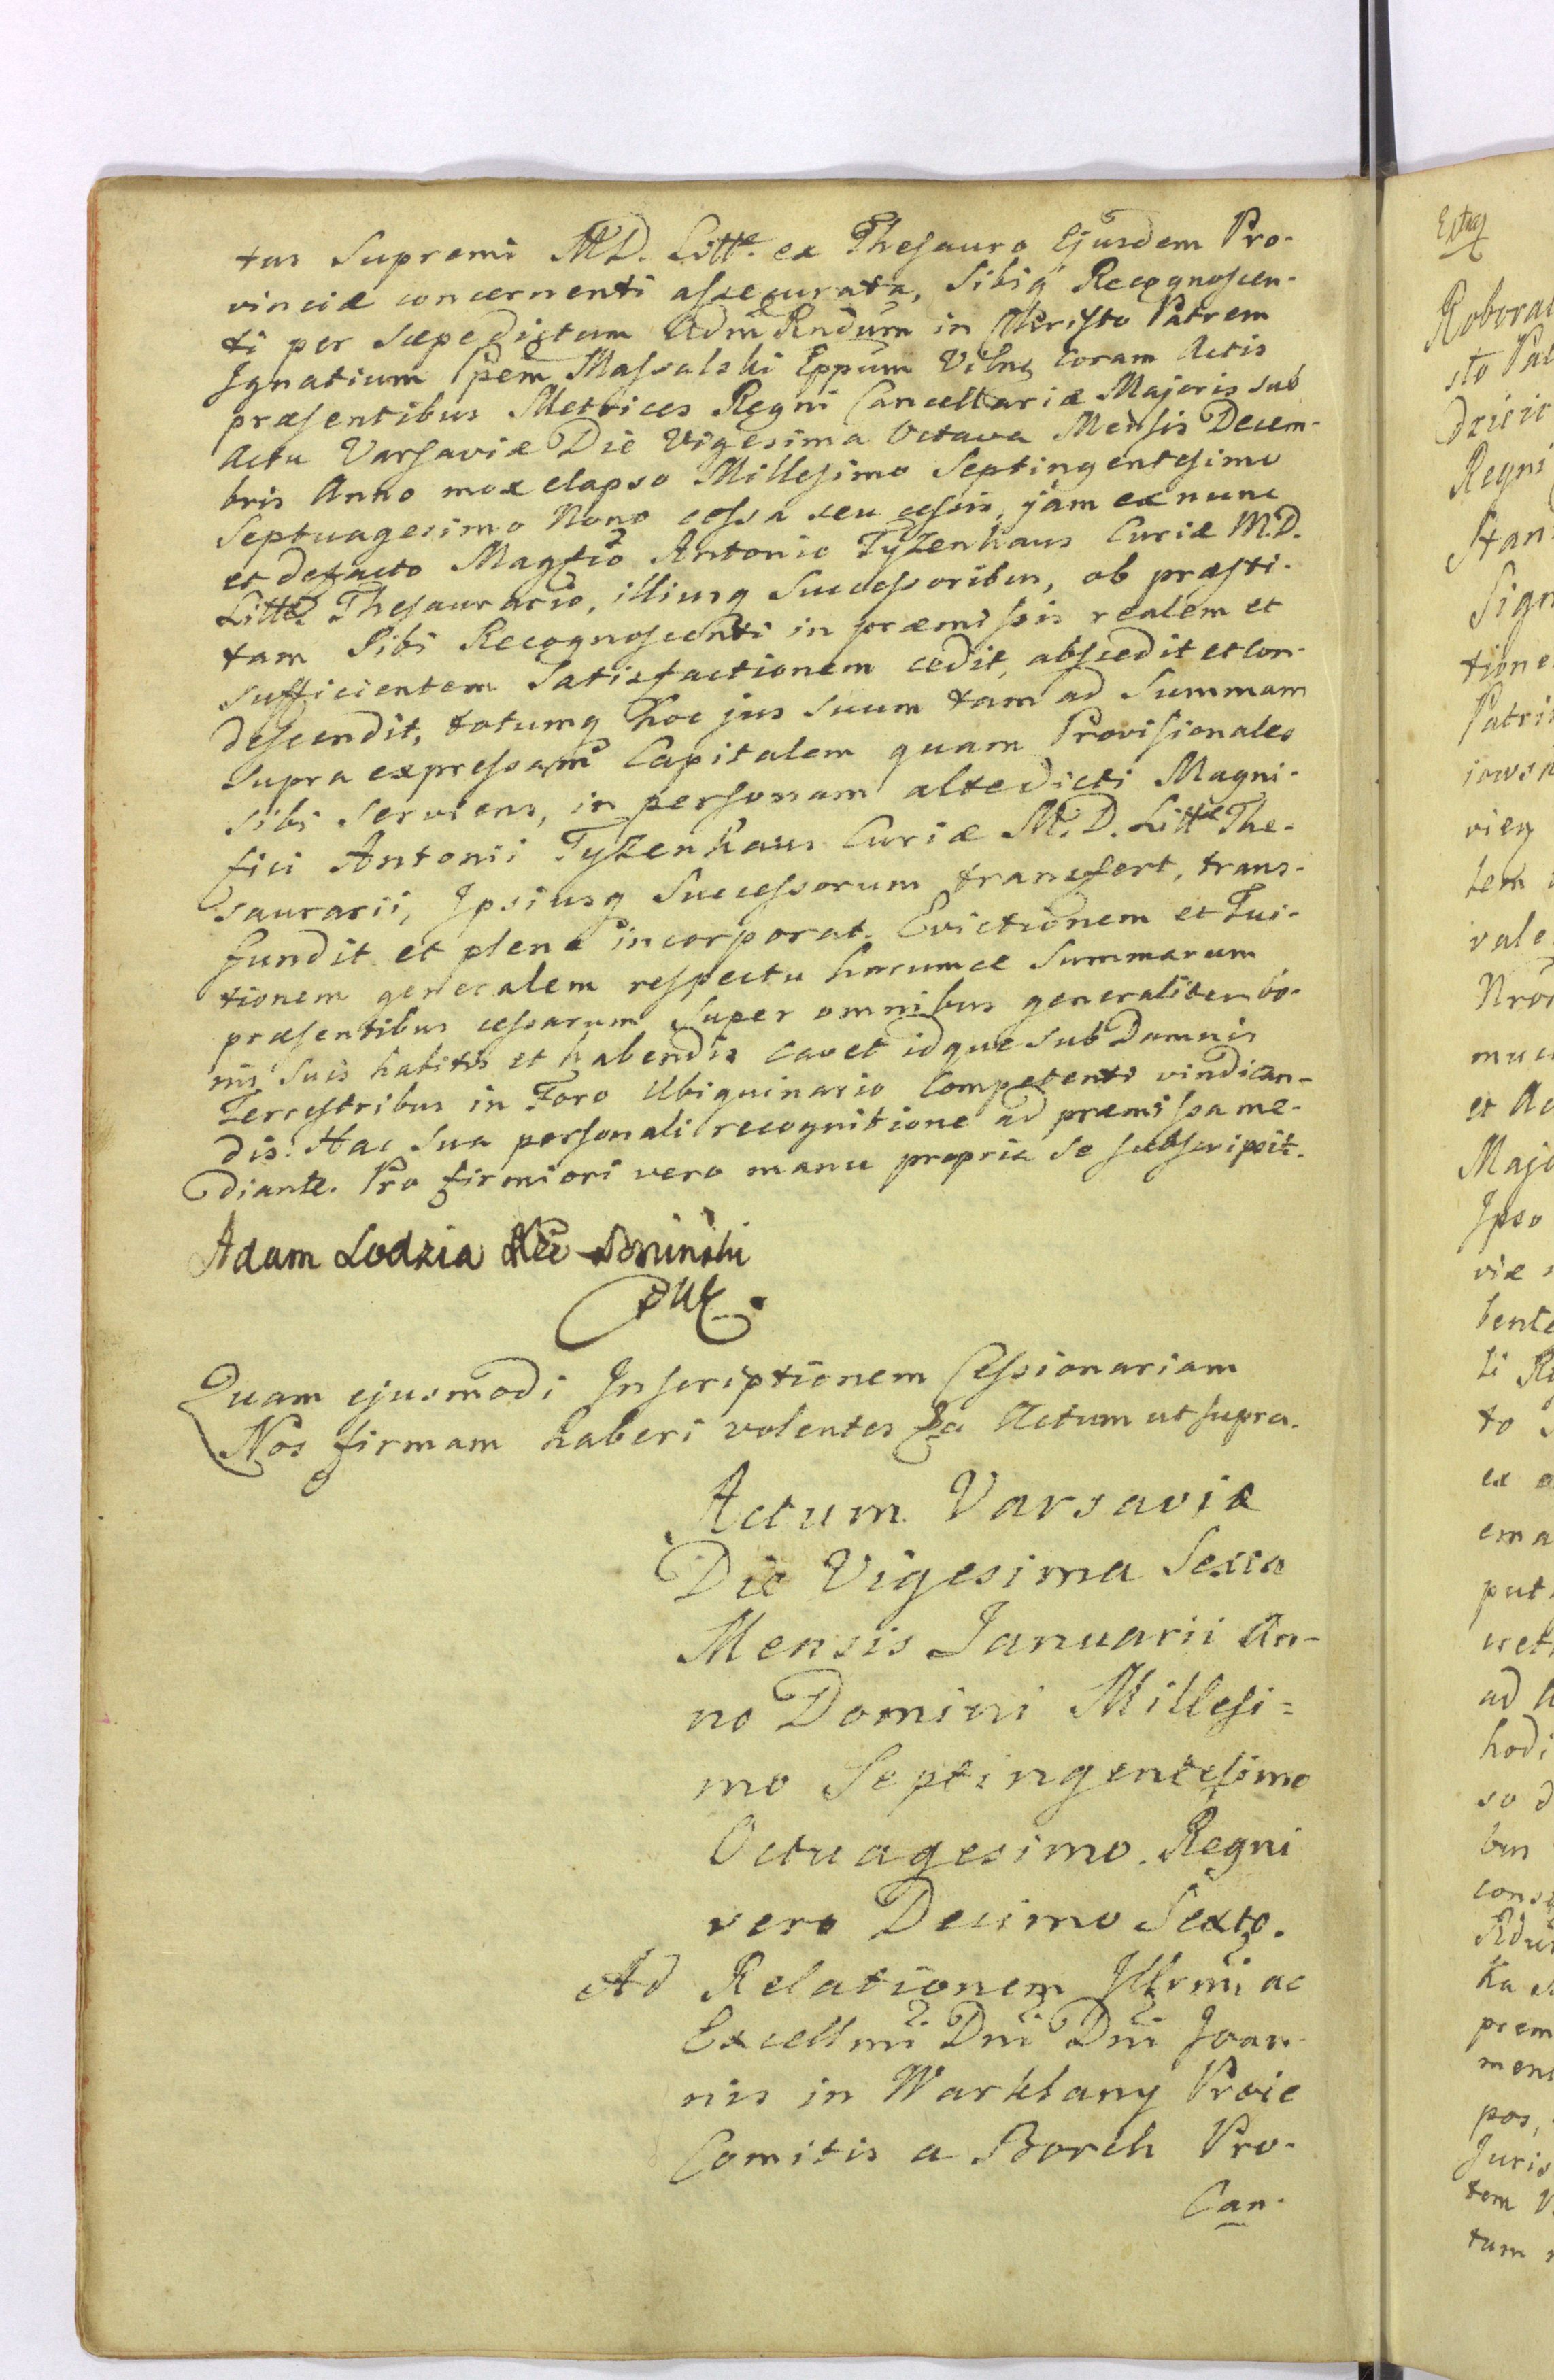 tus Supremi M.D. Litt. ex Thesauro Ejusdem Pro-
vinciæ concernenti assecurata, Sibiq Recognoscen-
ti per sæpedictum Adm Rndum in Christo Patrem
Ignatium Ppem Massalski Eppum Viln, Coram Actis
præsentibus Metrices Regni Cancellariæ Majoris sub
Actu Varsaviæ Die Vigesima Octava Mensis Decem-
bris Anno mox elapso Millesimo Septingentesimo
Septuagesimo Nono cessa seu cessis, jam ex nunc
et de facto Magfico Antonio Tyzenhaus Curiæ M.D.
Litt. Thesaurario, illiusq Successoribus, ob præsti-
tam Sibi Recognoscenti in præmissis realem et
sufficientem Satisfactionem cedit, abscedit et con-
descendit, totumq hoc jus suum tam ad Summam
supra expressam Capitalem quam Provisionales
sibi serviens, in personam altedicti Magni-
fici Antonii Tyzenhaus Curiæ M.D. Litt. The-
saurarii, Ipsiusq Successorum transfert, trans-
fundit et plene incorporat. Evictionem et Tui-
tionem generalem respectu harumce Summarum
præsentibus cessarum super omnibus generaliter bo-
nis suis habitis et habendis cavet idque sub Damnis
Terrestribus in Foro Ubiquinario Competenti vindican-
dis. Hac sua personali recognitione ad præmissa me-
diante. Pro firmiori vero manu propria se subscripsit.
Adam Lodzia Poninski
Quam ejusmodi Inscriptionem Cessionariam
Nos firmam haberi volentes Actum ut supra.
Actum Varsaviæ
Die Vigesima Sexta
Mensis Januarii An-
no Domini Millesi=
mo Septingentesimo
Octuagesimo. Regni
vero Decimo Sexto.
Ad Relationem Illrmi ac
Excellmi Dni Dni Joan-
nis in Warklany Proie
Comitis a Borch Pro-
Can-
Roborat
sto Pat
dzicic
Regni
Stan
Sign
tione
Patri
iowsk
vien
tem
vale
Nro
muu
et Ac
Majo
Ipso
viæ
bente
li Re
to
ex
ema
put
ad
hodi
so d
bus
cons
Ka
prem
mens
pos,
Juris
tem V
tum